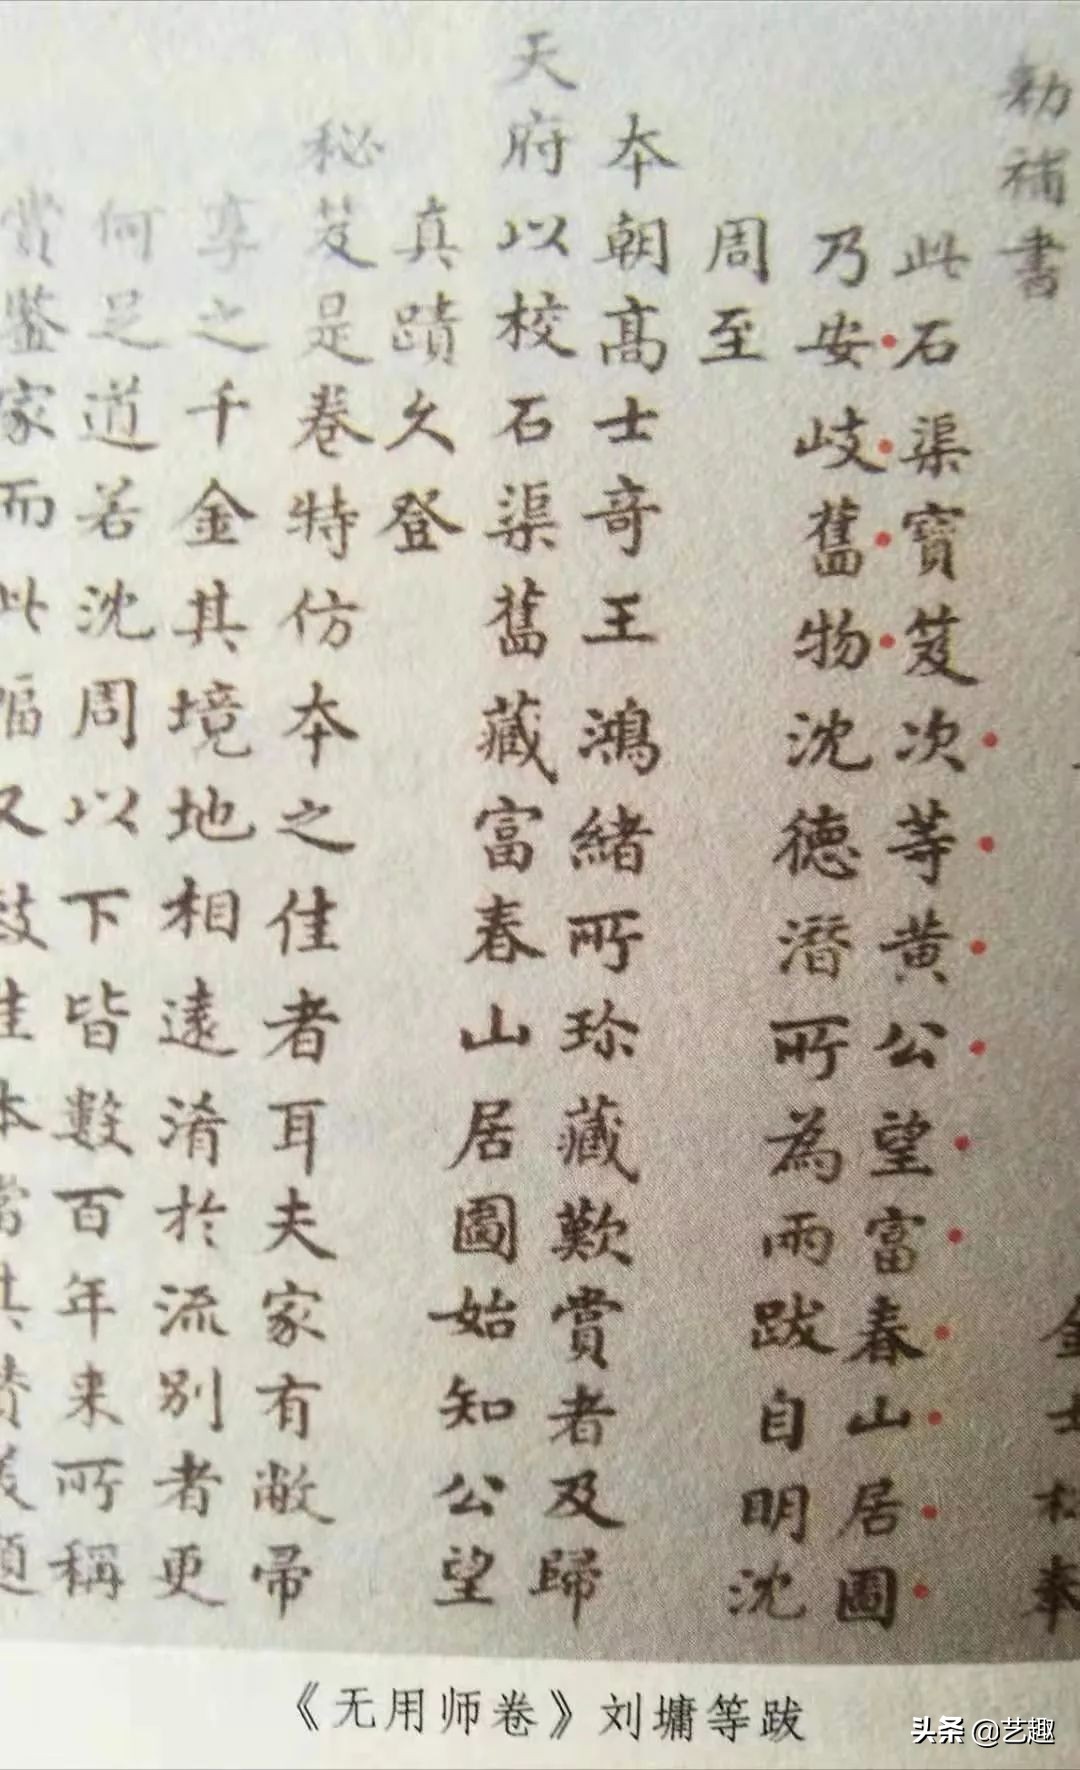 勅補書
金士松奉
此石渠寶笈次等黄公望富春山居圖
乃安岐舊物沈德潛所為兩跋自明沈
周至
本朝高士奇王鴻緒所珍藏歎賞者及歸
天府以校石渠舊藏富春山居圖始知公望
真蹟久登
秘笈是卷特仿本之佳者耳夫家有敝帚
享之千金其境地相遠淆於流別者更
何足道若沈周以下皆數百年来所稱
賞鑒家而此幅又
《无用师卷》刘墉等跋
头条 @艺趣